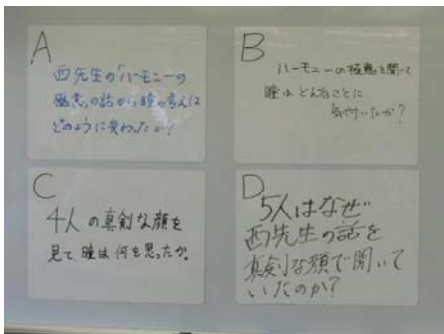 A
西先生の「ハーモニーの
極意」の話から瞳の考えは
どのように変わったか？
B
ハーモニーの極意を聞いて
瞳は、どんなことに
気付いたか？
C
4人の真剣な顔を
見て、瞳は何を思ったか。
D
5人はなぜ
西先生の話を
真剣な顔で聞いて
いたのか？